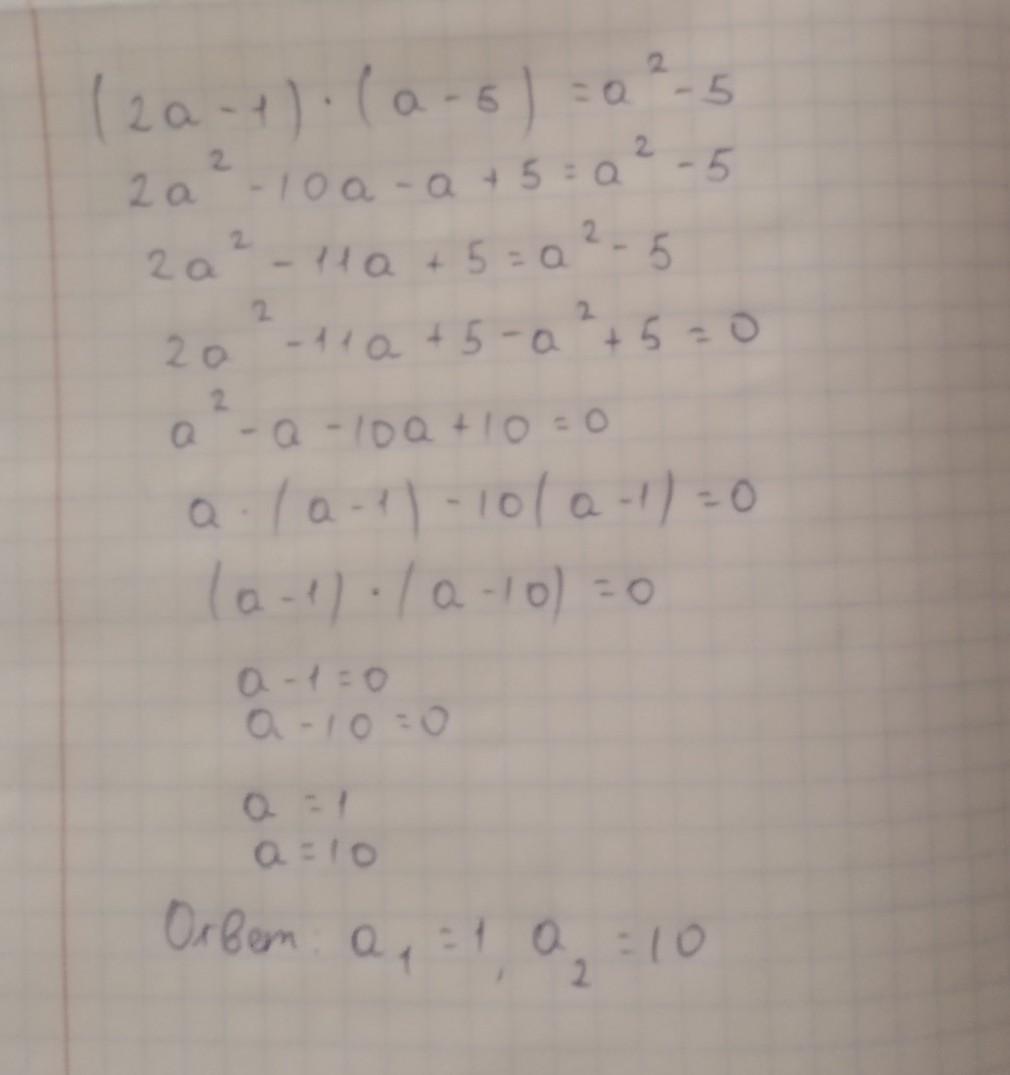 (2a-1)·(a-5)=a²-5
2a²-10a-a+5=a²-5
2a²-11a+5=a²-5
2a²-11a+5-a²+5=0
a²-a-10a+10=0
a·(a-1)-10(a-1)=0
(a-1)·(a-10)=0
a-1=0
a-10=0
a=1
a=10
Ответ: a₁=1, a₂=10